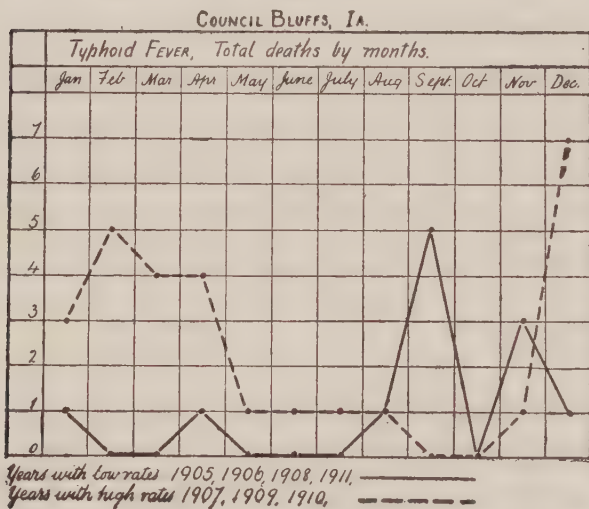 COUNCIL BLUFFS, IA.
Typhoid FEVER, Total deaths by months.
Jan Feb Mar Apr May June July Aug Sept. Oct Nov Dec.
7
6
5
4
3
2
1
0
Years with low rates 1905, 1906, 1908, 1911,
Years with high rates 1907, 1909, 1910,